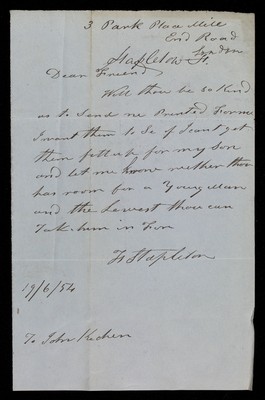 3 Park Place Mile
End Road
London
Stapleton Fs.
Dear Friend
Will thou be so Kind
as to Send me Printed Forme
I want them to Se if I can't get
them fill up for my Son
and let me know wether thou
has room for a Young Man
and the Lowest thou can
Take him in For
Fs Stapleton
19/6/54
To John Kitchen